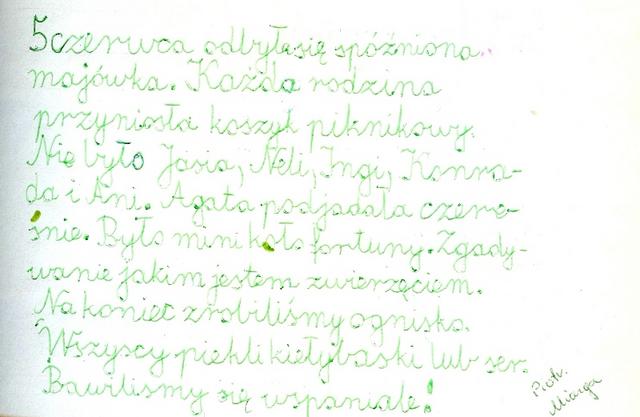 5 czerwca odbyła się spóźniona
majówka. Każda rodzina
przyniosła koszyk piknikowy.
Nie było Jasia, Neli, Ingi, Konra-
da i Ani. Agata podjadała czere-
śnie. Było mini koło fortuny. Zgady-
wanie jakim jestem zwierzęciem.
Na koniec zrobiliśmy ognisko.
Wszyscy piekli kiełbaski lub ser.
Bawiliśmy się wspaniale!
Piotr